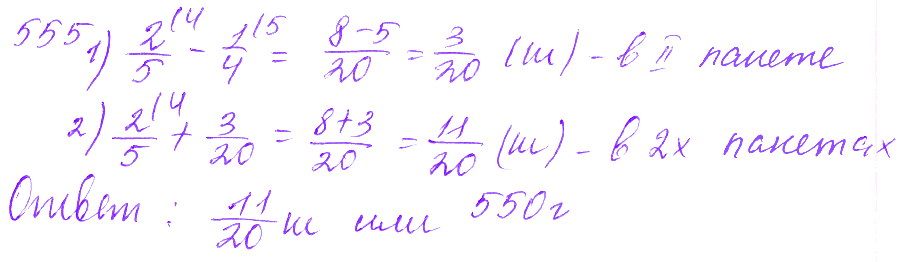 555 1) 2/5 (4 - 1/4 (5 = 8-5/20 = 3/20 (ш) - в II пакете
2) 2/5 (4 + 3/20 = 8+3/20 = 11/20 (ш) - в 2х пакетах
Ответ: 11/20 ш или 550г